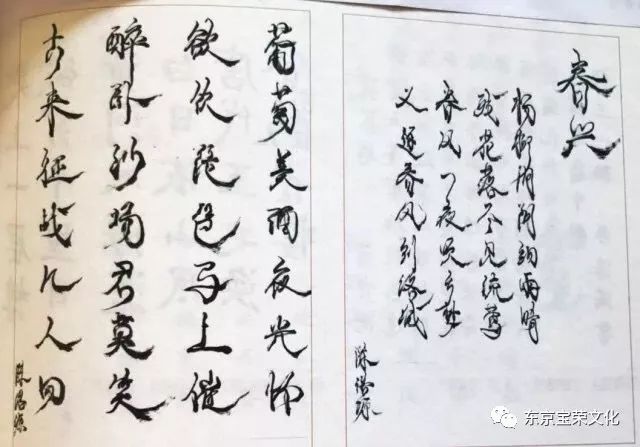 春兴
杨柳阴阴细雨晴
残花落尽见流莺
春风一夜吹乡梦
又逐春风到洛城
葡萄美酒夜光杯
欲饮琵琶马上催
醉卧沙场君莫笑
古来征战几人回
东京宝荣文化